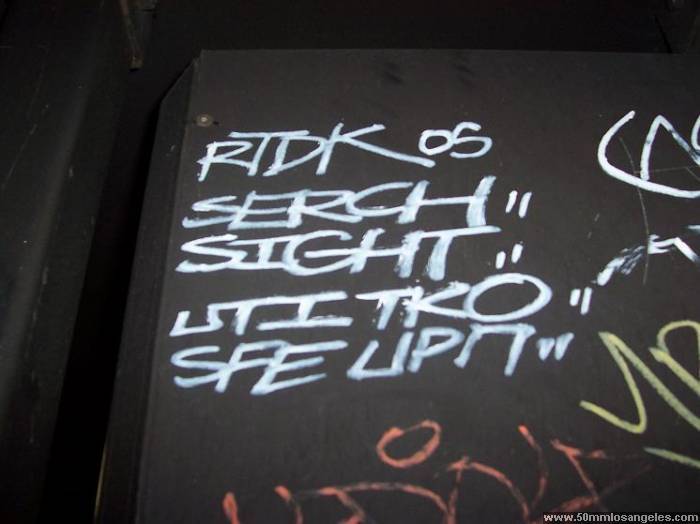 RTDK OS
SERCH "
SIGHT "
UTI TKO "
SFE UPN "
www.50mmlosangeles.com